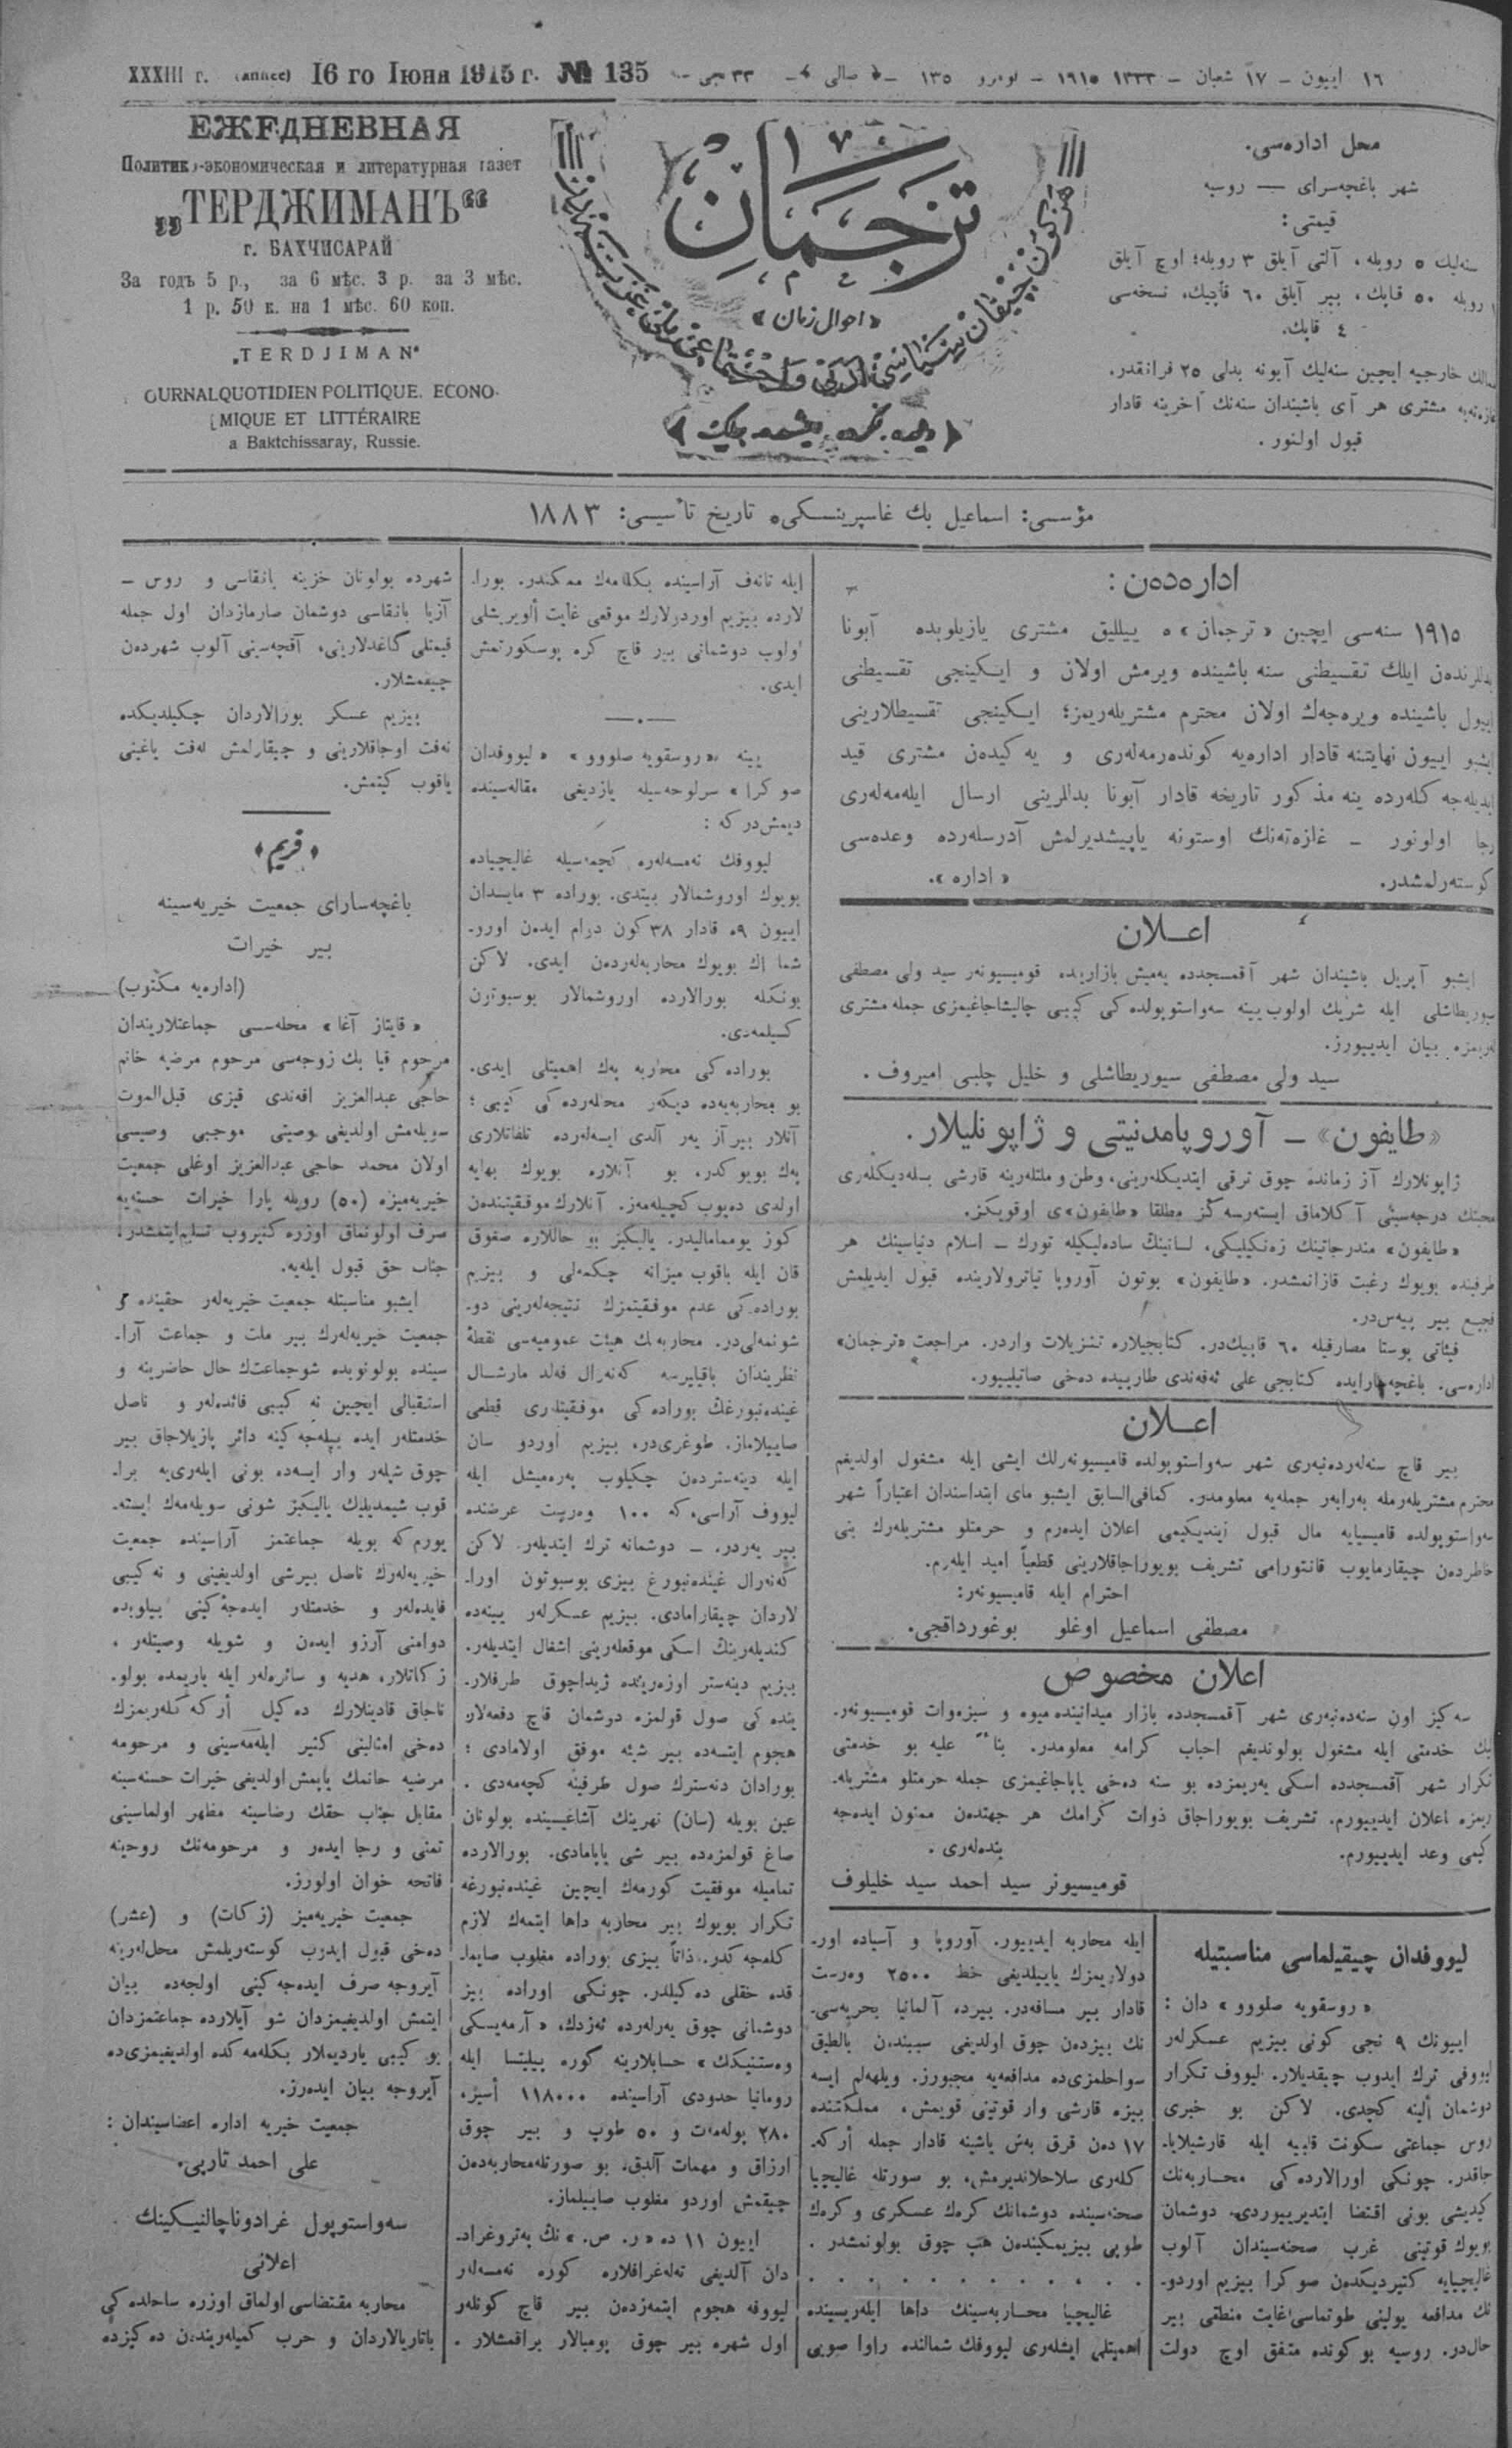 XXXIII г. (аннее) 16 го Іюня 1915 г. № 135
١٦ اییون – ١٧ شعبان – ١٣٣٣ ١٩١٥ – نومرو ١٣٥
ЕЖЕДНЕВНАЯ
Политико-экономическая и литературная газет
„ТЕРДЖИМАНЪ“
г. БАХЧИСАРАЙ
За годъ 5 р., за 6 мѣс. 3 р. за 3 мѣс.
1 р. 50 к. на 1 мѣс. 60 коп.
„TERDJIMAN“
OURNALQUOTIDIEN POLITIQUE, ECONO-
MIQUE ET LITTÉRAIRE
a Baktchissaray, Russie.
ترجمان
«احوال زمان»
محل اداره‌سی.
شهر باغچه‌سرای — روسیه
قیمتی:
سنه‌لیك ٥ روبله، آلتی آیلق ٣ روبله؛ اوچ آیلق
روبله ٥٠ قاپك، بیر آیلق ٦٠ قاپیك، نسخه‌سی
٤ قاپك.
خارجیه ایچین سنه‌لیك آبونه بدلی ٢٥ فرانقدر.
مشتری هر آی باشیندان سنه‌نك آخرینه قادار
قبول اولنور.
مؤسسی: اسماعیل بك غاسپرینسكی تاریخ تأسیسی: ١٨٨٣
اداره‌دن:
١٩١٥ سنه‌سی ایچین «ترجمان»ه ییللیق مشتری یازیلوبده آبونا
بدللرندن ایلك تقسیطنی سنه باشینده ویرمش اولان و ایكینجی تقسیطنی
اییول باشینده ویره‌جه‌ك اولان محترم مشتریله‌ریمز؛ ایكینجی تقسیطلارینی
ایشبو اییون نهایتنه قادار اداره‌یه كونده‌رمه‌له‌ری و یه كیده‌ن مشتری قید
ایدیله‌جه كلرده ینه مذكور تاریخه قادار آبونا بدللرینی ارسال ایله‌مه‌له‌ری
رجا اولونور – غازه‌ته‌نك اوستونه یاپیشدیرلمش آدرسلرده وعده‌سی
كوسته‌رلمشدر. «اداره».
اعـلان
ایشبو آپریل باشیندان شهر آقمسجدده یه‌میش بازارینده قومیسیونه‌ر سید ولی مصطفی
سیوریطاشلی ایله شریك اولوب یینه سه‌واستوپولده كی كیبی چالیشاجاغیمزی جمله مشتری
له‌ریمزه بیان ایدییورز.
سید ولی مصطفی سیوریطاشلی و خلیل چلبی امیروف.
«طایفون» – آوروپا مدنیتی و ژاپونلیلار.
ژاپونلارك آز زمانده چوق ترقی ایتدیكله‌رینی، وطن و ملتله‌رینه قارشی بسله‌دیكله‌ری
محبتك درجه‌سینی آكلاماق ایسته‌رسه‌كز مطلقا «طایفون»ی اوقویكز.
«طایفون» مندرجاتینك زه‌نكیلیكی، لسانینك ساده‌لیكیله تورك – اسلام دنیاسینك هر
طرفینده بویوك رغبت قازانمشدر. «طایفون» بوتون آوروپا تیاترولارینده قبول ایدیلمش
فجیع بیر پیه‌س‌در.
فیئاتی پوستا مصارفیله ٦٠ قاپیك‌در. كتابجیلاره تنزیلات واردر. مراجعت «ترجمان»
اداره‌سی. باغچه‌سارایده كتابجی علی ئه‌فه‌ندی طارپیده دخی صاتیلییور.
اعـلان
بیر قاچ سنه‌لرده‌نبه‌ری شهر سه‌واستوپولده قامیسیونه‌رلك ایشی ایله مشغول اولدیغم
محترم مشتریله‌رمله به‌رابه‌ر جمله‌یه معلومدر. كمافی‌السابق ایشبو مای ابتداسندان اعتباراً شهر
سه‌واستوپولده قامیسیایه مال قبول ایتدیكیمی اعلان ایده‌رم و حرمتلو مشتریله‌رك بنی
خاطردن چیقارمایوب قانتورامی تشریف بویوراجاقلارینی قطعیاً امید ایله‌رم.
احترام ایله قامیسیونه‌ر:
مصطفی اسماعیل اوغلو بوغورداقجی.
اعلان مخصوص
سه‌كیز اون سنه‌ده‌نبه‌ری شهر آقمسجدده بازار میدانینده میوه و سبزه‌وات قومیسیونه‌ر-
لیك خدمتی ایله مشغول بولوندیغم احباب كرامه معلومدر. بناءً علیه بو خدمتی
تكرار شهر آقمسجدده اسكی یه‌ریمزده بو سنه دخی یاپاجاغیمزی جمله حرمتلو مشتریله-
ریمزه اعلان ایدییورم. تشریف بویوراجاق ذوات كرامك هر جهتدن ممنون ایده‌جه
كیمی وعد ایدییورم. بنده‌له‌ری.
قومیسیونر سید احمد سید خلیلوف
لیووفدان چیقیلماسی مناسبتیله
«روسقویه صلووو» دان:
اییونك ٩ نجی كونی بیزیم عسكرلر
لیووفی ترك ایدوب چیقدیلار. لیووف تكرار
دوشمان ألینه كچدی. لاكن بو خبری
روس جماعتی سكونت قلبیه ایله قارشیلایا-
جاقدر. چونكی اورالارده‌كی محاربه‌نك
كیدیشی بونی اقتضا ایتدیرییوردی. دوشمان
بویوك قوتینی غرب صحنه‌سیندان آلوب
غالیچیایه كتیردیكدن صوكرا بیزیم اوردو-
نك مدافعه یولینی طوتماسی غایت منطقی بیر
حال‌در. روسیه بو كونده متفق اوچ دولت
ایله محاربه ایدییور. آوروپا و آسیاده اور-
دولاریمزك یاییلدیغی خط ٢٥٠٠ وه‌رست
قادار بیر مسافه‌در. بیرده آلمانیا بحریه‌سی-
نك بیزدن چوق اولدیغی سببندن بالطیق
سواحلمزی‌ده مدافعه‌یه مجبورز. ویلهه‌لم ایسه
بیزه قارشی وار قوتینی قویمش، مملكتنده
١٧ دن قرق به‌ش یاشینه قادار جمله أركه-
كله‌ری سلاحلاندیرمش، بو صورتله غالیچیا
صحنه‌سینده دوشمانك كرك عسكری و كرك
طوپی بیزیمكیندن هپ چوق بولونمشدر.
. . . . . . . . . . . .
غالیچیا محاربه‌سینك داها ایله‌ریسینده
اهمیتلی ایشله‌ری لیووفك شمالنده راوا صویی
ایله تانه‌ف آراسینده بكله‌مه‌ك ممكندر. بورا-
لارده بیزیم اوردولارك موقعی غایت ألویریشلی
اولوب دوشمانی بیر قاچ كره پوسكورتمش
ایدی.
یینه «روسقویه صلووو» «لیووفدان
صوكرا» سرلوحه‌سیله یازدیغی مقاله‌سینده
دیمش‌در كه:
لیووفك نه‌مسه‌له‌ره كچمه‌سیله غالیچیاده
بویوك اوروشمالار بیتدی. بوراده ٣ مایسدان
اییون ٩ه قادار ٣٨ كون درام ایدن اورو-
شما اك بویوك محاربه‌لردن ایدی. لاكن
بونكله بورالارده اوروشمالار بوسبوتون
كسیلمه‌دی.
بوراده كی محاربه پك اهمیتلی ایدی.
بو محاربه‌یه‌ده دیكه‌ر محللرده كی كیبی؛
آنلار بیر آز یه‌ر آلدی ایسه‌لرده تلفاتلاری
پك بویوكدر، بو آنلاره بویوك بهایه
اولدی دیوب كچیله‌مه‌ز. آنلارك موفقیتندن
كوز یومماملیدر. یالیكز بو حاللاره صغوق
قان ایله باقوب میزانه چكمه‌لی و بیزیم
بوراده‌كی عدم موفقیتمزك نتیجه‌لرینی دو-
شونمه‌لی‌در. محاربه‌نك هیئت عمومیه‌سی نقطهٔ
نظریندان باقیلیرسه كه‌نه‌رال فه‌لد مارشال
غینده‌نبورغك بوراده كی موفقیتلری قطعی
صاییلاماز. طوغری‌در، بیزیم اوردو سان
ایله دینه‌ستردن چكیلوب په‌ره‌میشل ایله
لیووف آراسی، كه ١٠٠ وه‌رست عرضنده
بیر یه‌ردر، – دوشمانه ترك ایتدیلر. لاكن
كه‌نه‌رال غینده‌نبورغ بیزی بوسبوتون اورا-
لاردان چیقارامادی. بیزیم عسكرلر یینه‌ده
كندیله‌رینك اسكی موقعله‌رینی اشغال ایتدیلر.
بیزیم دینه‌ستر اوزه‌رینده ژیداچوق طرفلار-
ینده كی صول قولمزه دوشمان قاچ دفعه‌لار
هجوم ایتسه‌ده بیر شیئه موفق اولامادی؛
بورادان دنه‌سترك صول طرفینه كچه‌مه‌دی.
عین بویله (سان) نهرینك آشاغیسینده بولونان
صاغ قولمزه‌ده بیر شی یاپامادی. بورالارده
تمامیله موفقیت كورمه‌ك ایچین غینده‌نبورغه
تكرار بویوك بیر محاربه داها ایتمه‌ك لازم
كله‌جه‌كدر. ذاتاً بیزی بوراده مغلوب صایما-
قده حقلی ده‌كیلدر. چونكی اوراده بیز
دوشمانی چوق یه‌رله‌رده ئه‌زدك، «آرمه‌یسكی
وه‌ستنیك» حسابلارینه كوره بیلیتسا ایله
رومانیا حدودی آراسینده ١١٨٠٠٠ أسیر،
٢٨٠ پوله‌مه‌ت و ٥٠ طوپ و بیر چوق
ارزاق و مهمات آلدق، بو صورتله محاربه‌دن
چیقمش اوردو مغلوب صاییلماز.
اییون ١١ ده «ر. ص.»نك په‌تروغراد-
دان آلدیغی ته‌له‌غرافلاره كوره نه‌مسه‌لر
لیووفه هجوم ایتمه‌زدن بیر قاچ كونلر
اول شهره بیر چوق بومبالار براقمشلار.
شهرده بولونان خزینه بانقاسی و روس –
آزیا بانقاسی دوشمان صارمازدان اول جمله
قیمتلی كاغدلارینی، آقچه‌سینی آلوب شهردن
چیقمشلار.
بیزیم عسكر بورالاردان چكیلدیكده
نه‌فت اوجاقلارینی و چیقارلمش نه‌فت یاغینی
یاقوب كیتمش.
«قریم»
باغچه‌سارای جمعیت خیریه‌سینه
بیر خیرات
(اداره‌یه مكتوب)
«قایتاز آغا» محله‌سی جماعتلاریندان
مرحوم قیا بك زوجه‌سی مرحوم مرضیه خانم
حاجی عبدالعزیز افه‌ندی قیزی قبل‌الموت
سویله‌مش اولدیغی وصیتی موجبی وصیسی
اولان محمد حاجی عبدالعزیز اوغلی جمعیت
خیریه‌میزه (٥٠) روبله پارا خیرات حسنه‌یه
صرف اولونماق اوزره كتیروب تسلیم ایتمشدر.
جناب حق قبول ایله‌یه.
ایشبو مناسبتله جمعیت خیریه‌لر حقینده و
جمعیت خیریه‌لرك بیر ملت و جماعت آرا-
سینده بولونوبده شو جماعتك حال حاضرینه و
استقبالی ایچین نه كیبی فائده‌لر و ناصل
خدمتلر ایده بیله‌جه كینه دائر یازیلاجاق بیر
چوق شیلر وار ایسه‌ده بونی ایله‌ری‌یه برا-
قوب شیمدیلیك یالیكز شونی سویله‌مه‌ك ایسته-
یورم كه بویله جماعتمز آراسینده جمعیت
خیریه‌لرك ناصل بیرشی اولدیغینی و نه كیبی
فایده‌لر و خدمتلر ایده‌جه كینی بیلوبده
دوامنی آرزو ایدن و شویله وصیتلر،
زكاتلار، هدیه و سائره‌لر ایله یاریمده بولو-
ناجاق قادینلارك ده‌كیل أركه كله‌ریمزك
دخی امثالینی كثیر ایله‌مه‌سینی و مرحومه
مرضیه خانمك یاپمش اولدیغی خیرات حسنه‌سینه
مقابل جناب حقك رضاسینه مظهر اولماسینی
تمنی و رجا ایده‌ر و مرحومه‌نك روحینه
فاتحه خوان اولورز.
جمعیت خیریه‌میز (زكات) و (عشر)
دخی قبول ایدوب كوسته‌ریلمش محل‌لرینه
آیروجه صرف ایده‌جه كینی اولجه‌ده بیان
ایتمش اولدیغیمزدان شو آیلارده جماعتمزدان
بو كیبی یاردیملار بكله‌مه كده اولدیغیمزی‌ده
آیروجه بیان ایده‌رز.
جمعیت خیریه اداره اعضاسیندان:
علی احمد تارپی.
سه‌واستوپول غرادوناچالنیكینك
اعلانی
محاربه مقتضاسی اولماق اوزره ساحلده كی
باتاریالاردان و حرب كمیله‌ریندن ده‌كیزده